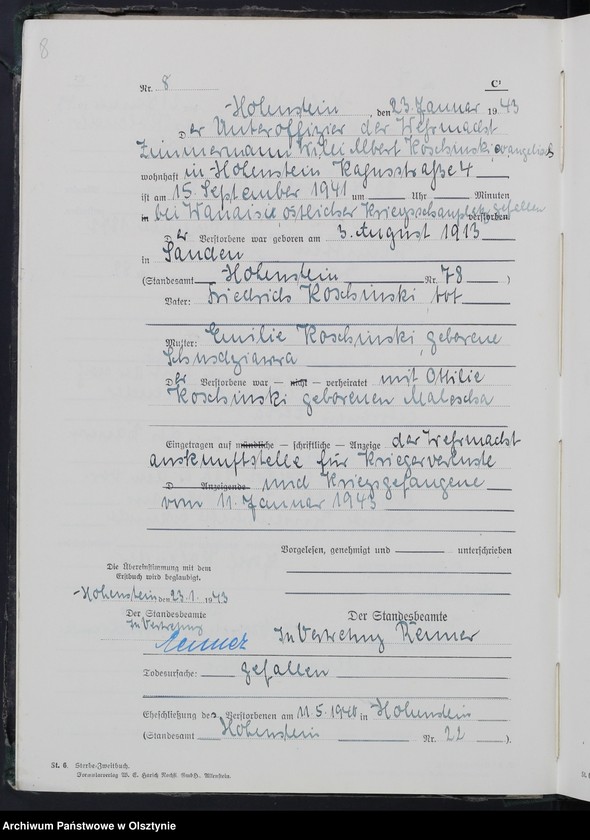 8
Nr. 8 C¹
Hohenstein, den 23. Januar 1943
Der Unteroffizier der Wehrmacht
Zimmermann Willi Albert Koschinski, evangelisch
wohnhaft in Hohenstein
ist am 15. September 1941 um Uhr Minuten
in bei östlicher Kriegsschauplatz gefallen verstorben
Der Verstorbene war geboren am 3. August 1913
in Sanden
(Standesamt Hohenstein Nr. 78 )
Vater: Friedrich Koschinski tot
Mutter: Emilie Koschinski, geborene
Der Verstorbene war — nicht — verheiratet mit Ottilie
Koschinski geborenen Malescha
Eingetragen auf mündliche — schriftliche — Anzeige der Wehrmacht
auskunftstelle für Kriegerverluste
D Anzeigende und Kriegsgefangene
vom 11. Januar 1943
Vorgelesen, genehmigt und unterschrieben
Die Übereinstimmung mit dem
Erstbuch wird beglaubigt.
Hohenstein den 23.1. 1943
Der Standesbeamte
In Vertretung
Der Standesbeamte
In Vertretung Renner
Todesursache: gefallen
Eheschließung des Verstorbenen am 11.5.1940 in Hohenstein
(Standesamt Hohenstein Nr. 22 ).
St. 6. Sterbe-Zweitbuch.
Vordruckverlag W. E. Harich Nachf. GmbH., Allenstein.
Archiwum Państwowe w Olsztynie